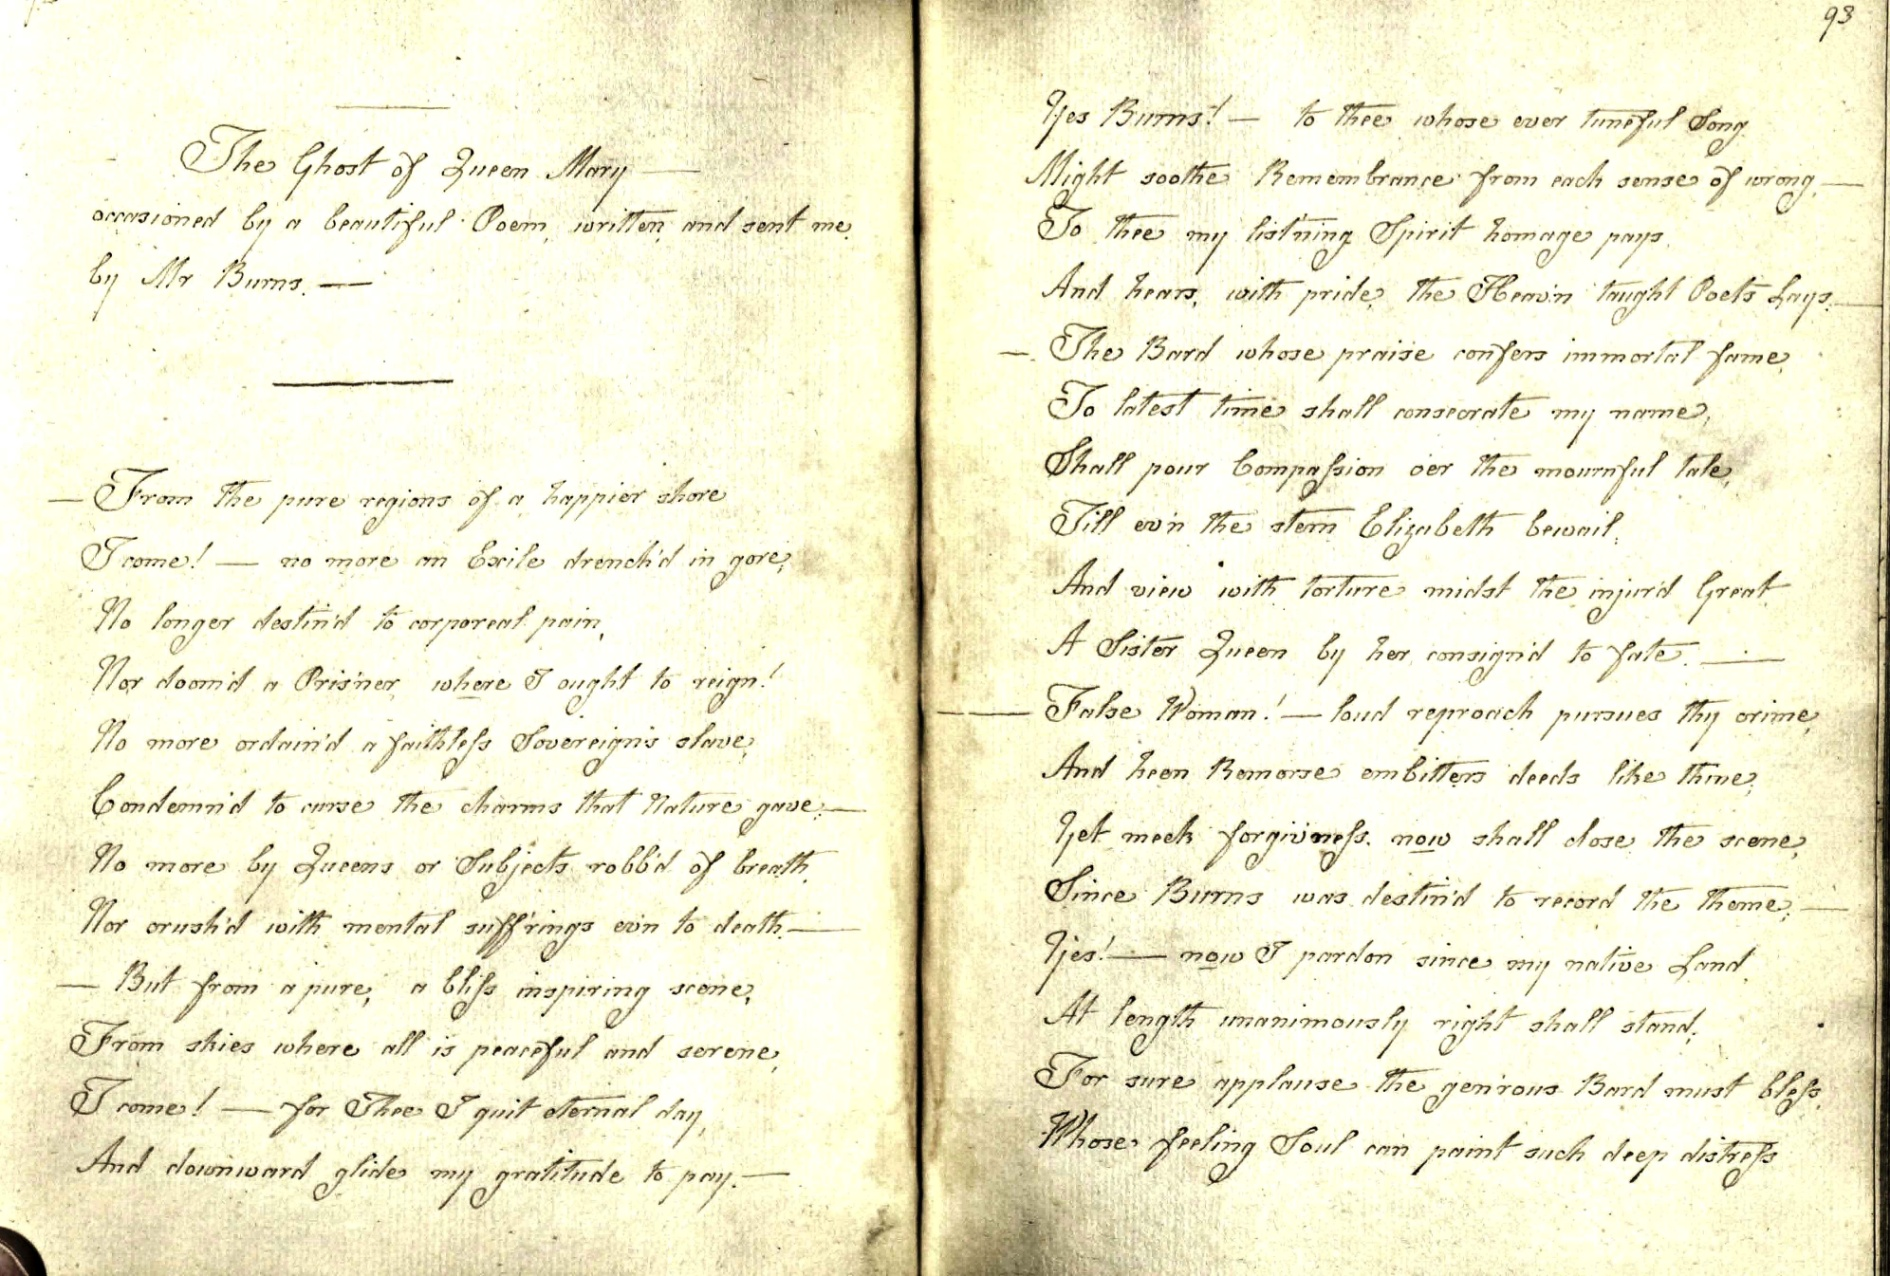 The Ghost of Queen Mary —
occasioned by a beautiful Poem, written, and sent me
by Mr Burns. —
— From the pure regions of a happier shore
I come! — no more an Exile drench'd in gore,
No longer destin'd to corporeal pain,
Nor doom'd a Pris'ner, where I ought to reign!
No more ordain'd a faithleſs Sovereign's slave,
Condemn'd to curse the charms that Nature gave; —
No more by Queens or Subjects robb'd of breath,
Nor crush'd with mental suff'rings ev'n to death. —
— But from a pure, a bliſs inspiring scene,
From skies where all is peaceful and serene,
I come! — for Thee I quit eternal day,
And downward glide my gratitude to pay. —
93
Yes Burns! — to thee whose ever tuneful Song
Might soothe Remembrance from each sense of wrong, —
To thee my list'ning Spirit homage pays,
And hears, with pride, the Heav'n taught Poet's Lays. —
— The Bard whose praise confers immortal fame,
To latest time shall consecrate my name,
Shall pour Compaſsion o'er the mournful tale,
Till ev'n the stern Elizabeth bewail,
And view with torture midst the injur'd Great
A Sister Queen by her consign'd to fate. —
— False Woman! — loud reproach pursues thy crime,
And keen Remorse embitters deeds like thine,
Yet meek forgivneſs now shall close the scene,
Since Burns was destin'd to record the theme; —
Yes! — now I pardon since my native Land
At length unanimously right shall stand;
For sure applause the gen'rous Bard must bleſs,
Whose feeling Soul can paint such deep distreſs